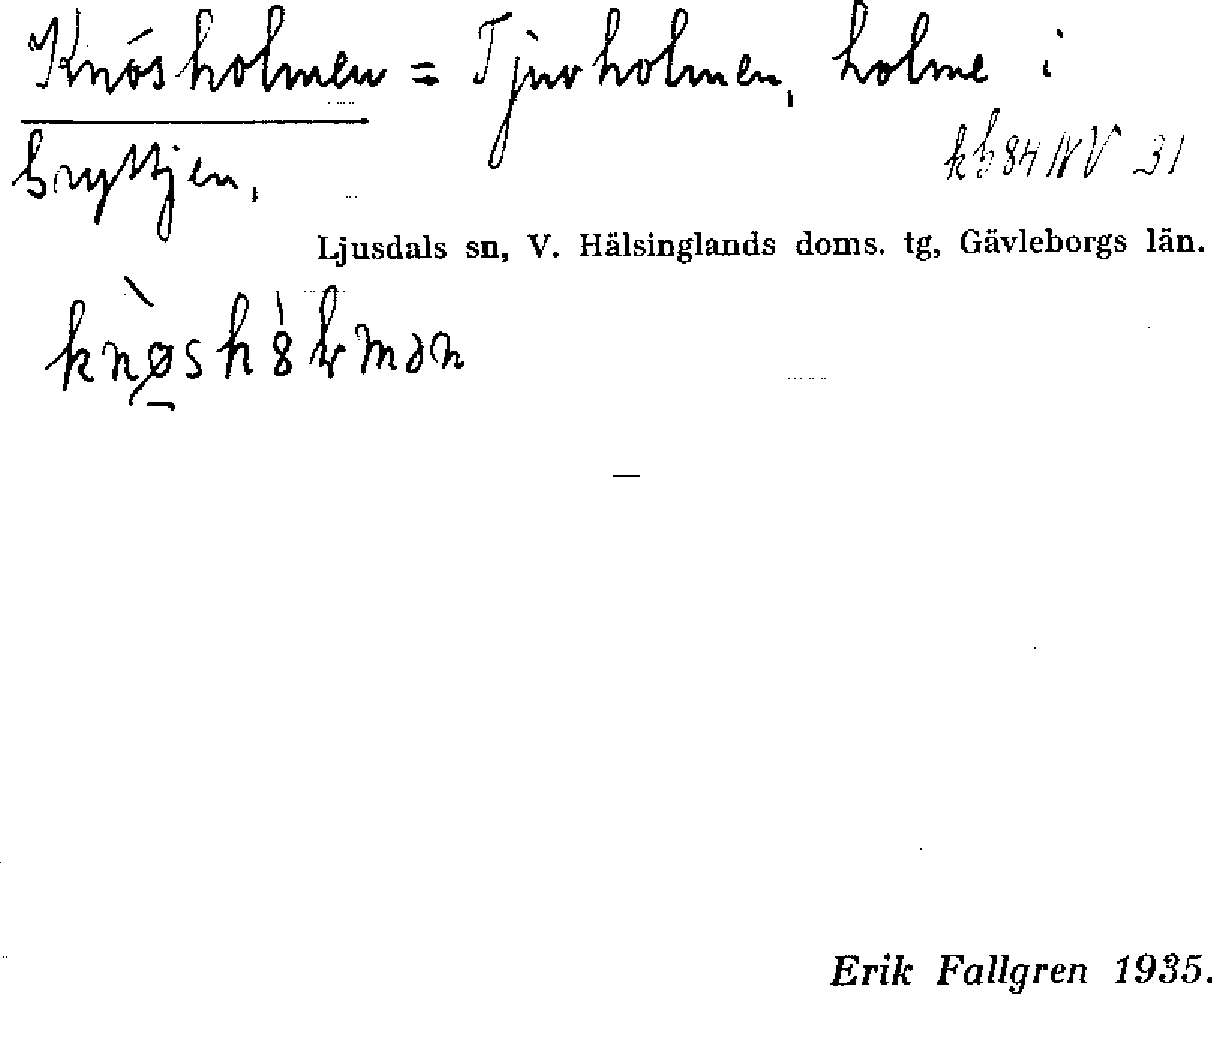 Knösholmen = Tjurholmen, holme i
Gryttjen.
kb 84 NV 31
Ljusdals sn, V. Hälsinglands doms. tg, Gävleborgs län.
Erik Fallgren 1935.